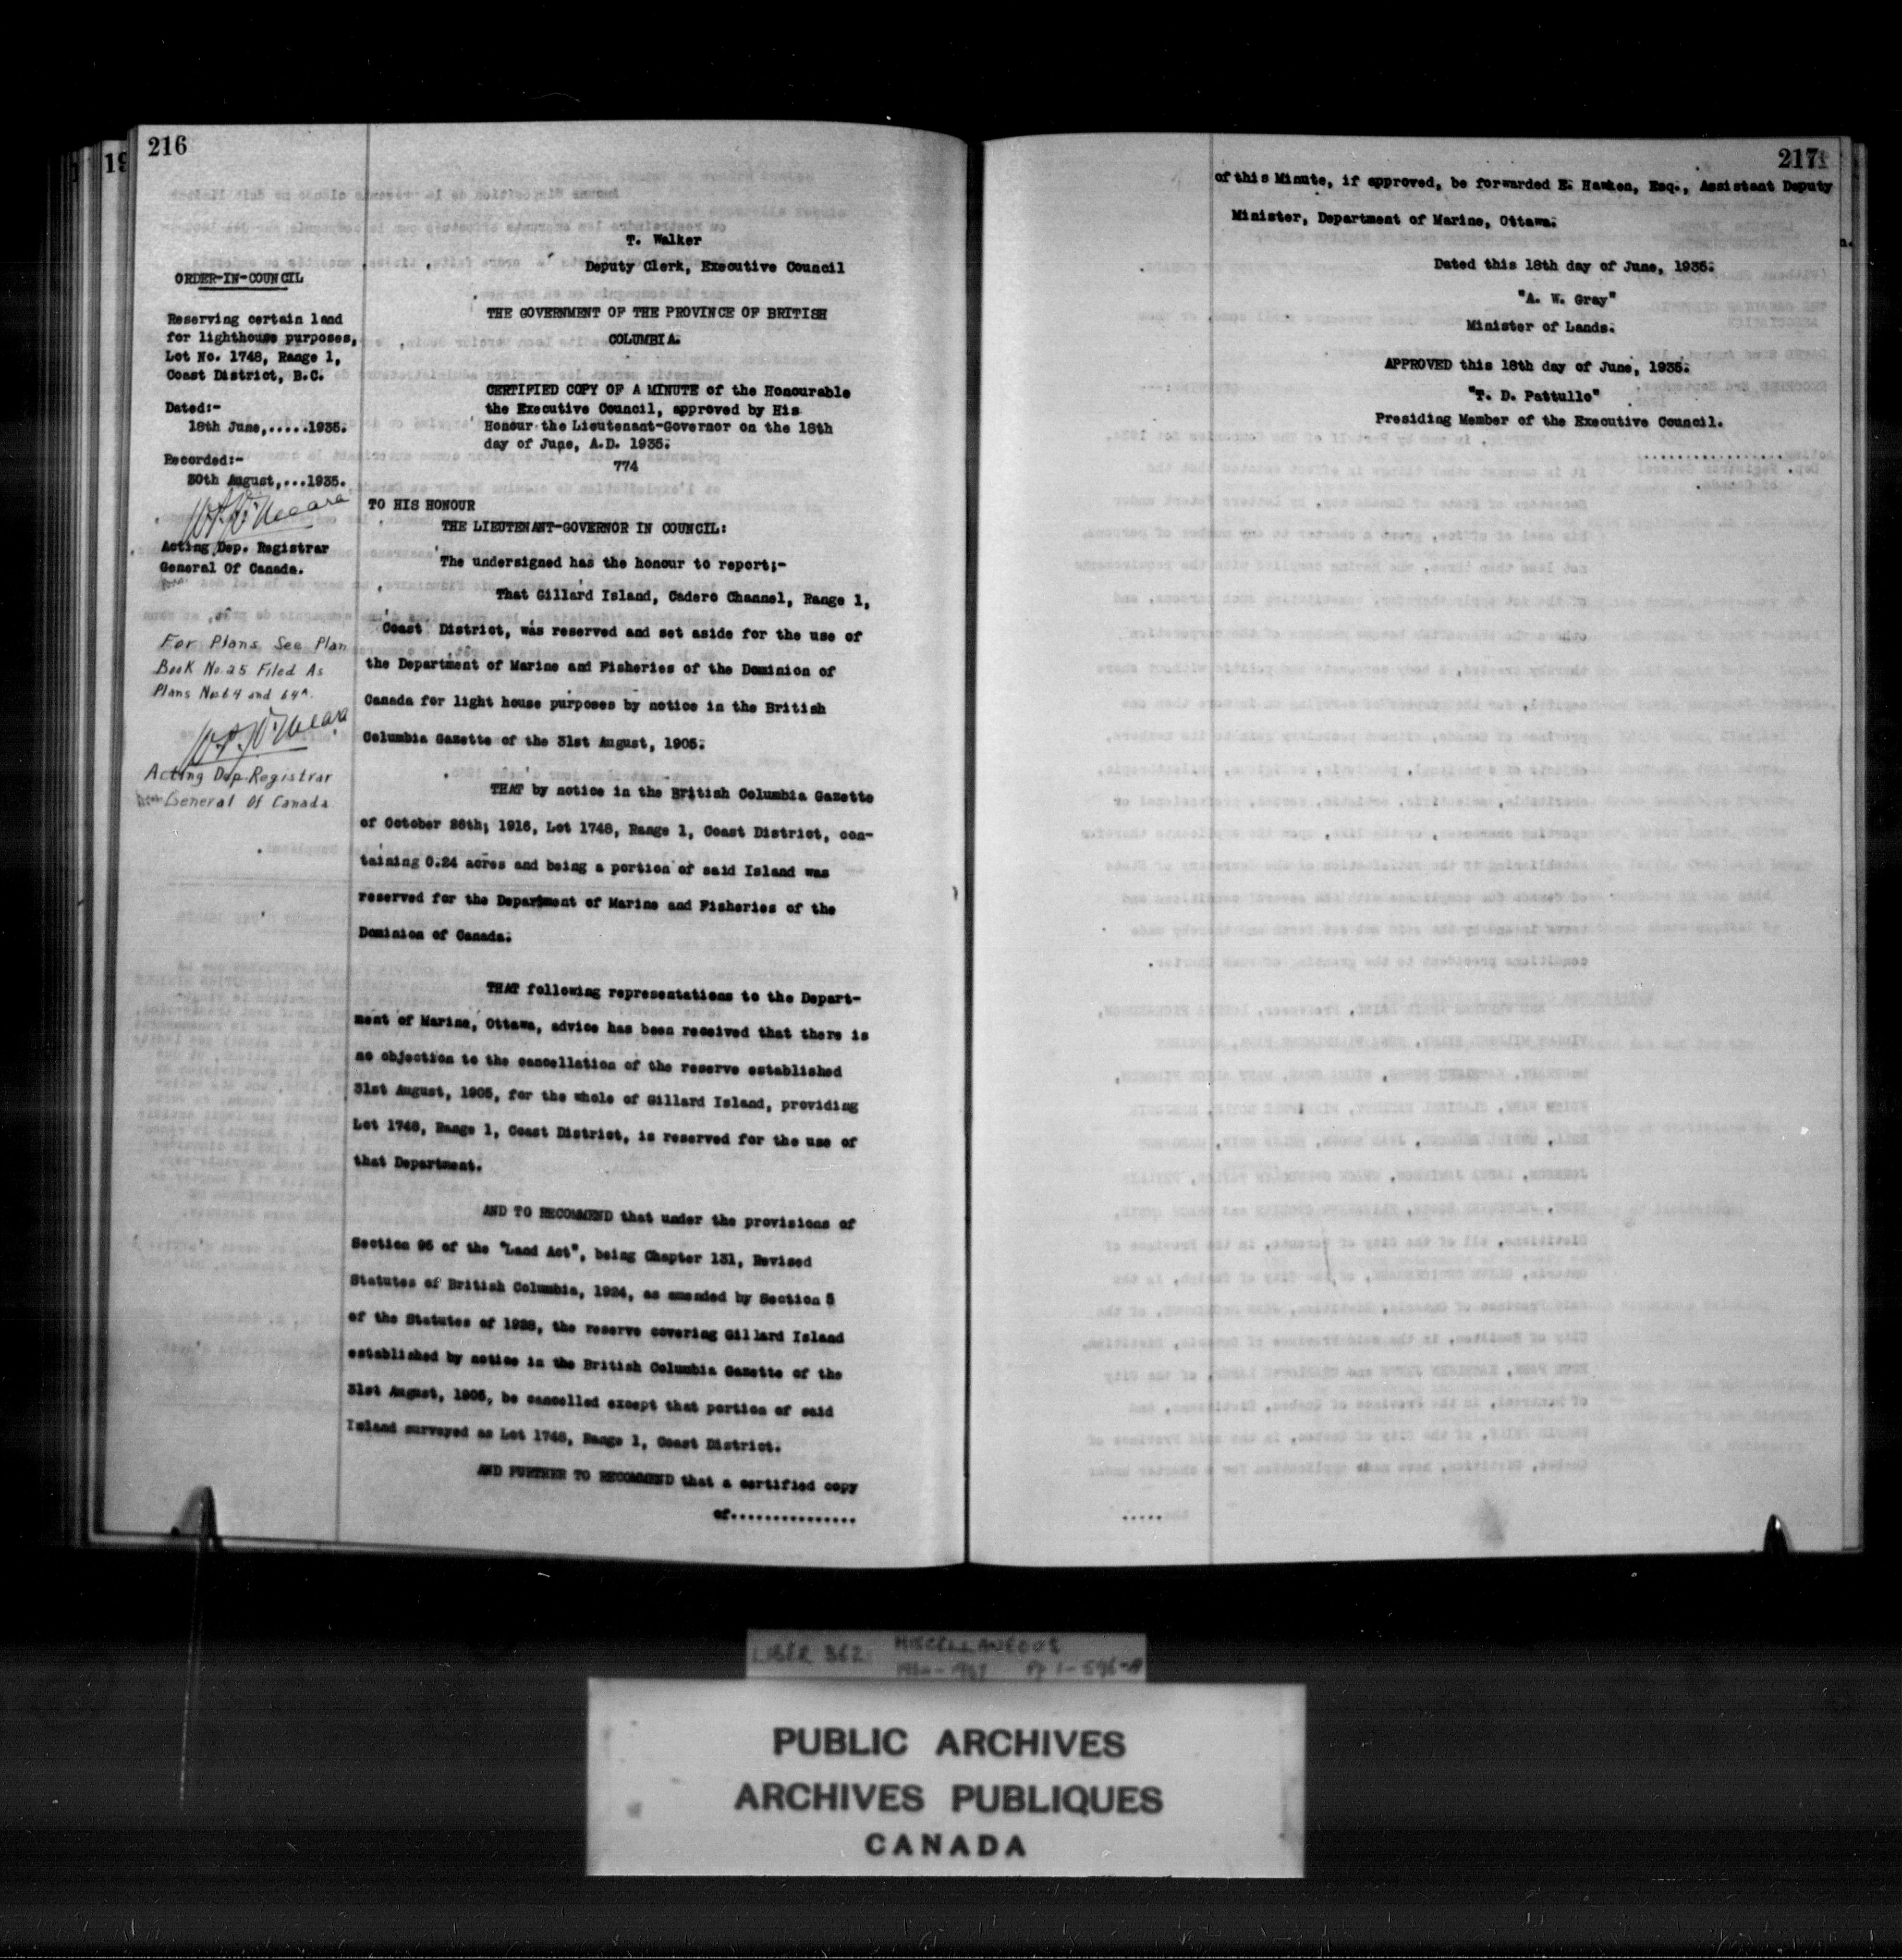 216
T. Walker
Deputy Clerk, Executive Council
ORDER-IN-COUNCIL
Reserving certain land
for lighthouse purposes,
Lot No. 1748, Range 1,
Coast District, B.C.
Dated:-
18th June,.....1935.
Recorded:-
30th August,...1935.
Acting Dep. Registrar
General Of Canada.
For Plans See Plan
Book No. 25 Filed As
Plans No 64 and 64A.
Acting Dep. Registrar
General Of Canada
THE GOVERNMENT OF THE PROVINCE OF BRITISH
COLUMBIA.
CERTIFIED COPY OF A MINUTE of the Honourable
the Executive Council, approved by His
Honour the Lieutenant-Governor on the 18th
day of June, A.D. 1935.
774
TO HIS HONOUR
THE LIEUTENANT-GOVERNOR IN COUNCIL:
The undersigned has the honour to report;-
That Gillard Island, Cadero Channel, Range 1,
Coast District, was reserved and set aside for the use of
the Department of Marine and Fisheries of the Dominion of
Canada for light house purposes by notice in the British
Columbia Gazette of the 31st August, 1905.
THAT by notice in the British Columbia Gazette
of October 26th; 1916, Lot 1748, Range 1, Coast District, con-
taining 0.24 acres and being a portion of said Island was
reserved for the Department of Marine and Fisheries of the
Dominion of Canada.
THAT following representations to the Depart-
ment of Marine, Ottawa, advice has been received that there is
no objection to the cancellation of the reserve established
31st August, 1905, for the whole of Gillard Island, providing
Lot 1748, Range 1, Coast District, is reserved for the use of
that Department.
AND TO RECOMMEND that under the provisions of
Section 95 of the "Land Act", being Chapter 131, Revised
Statutes of British Columbia, 1924, as amended by Section 5
of the Statutes of 1928, the reserve covering Gillard Island
established by notice in the British Columbia Gazette of the
31st August, 1905, be cancelled except that portion of said
Island surveyed as Lot 1748, Range 1, Coast District.
AND FURTHER TO RECOMMEND that a certified copy
of...............
217
of this Minute, if approved, be forwarded E. Hawken, Esq., Assistant Deputy
Minister, Department of Marine, Ottawa.
Dated this 18th day of June, 1935.
"A. W. Gray"
Minister of Lands.
APPROVED this 18th day of June, 1935.
"T. D. Pattullo"
Presiding Member of the Executive Council.
LIBER 362 MISCELLANEOUS
pp 1-596-A
PUBLIC ARCHIVES
ARCHIVES PUBLIQUES
CANADA